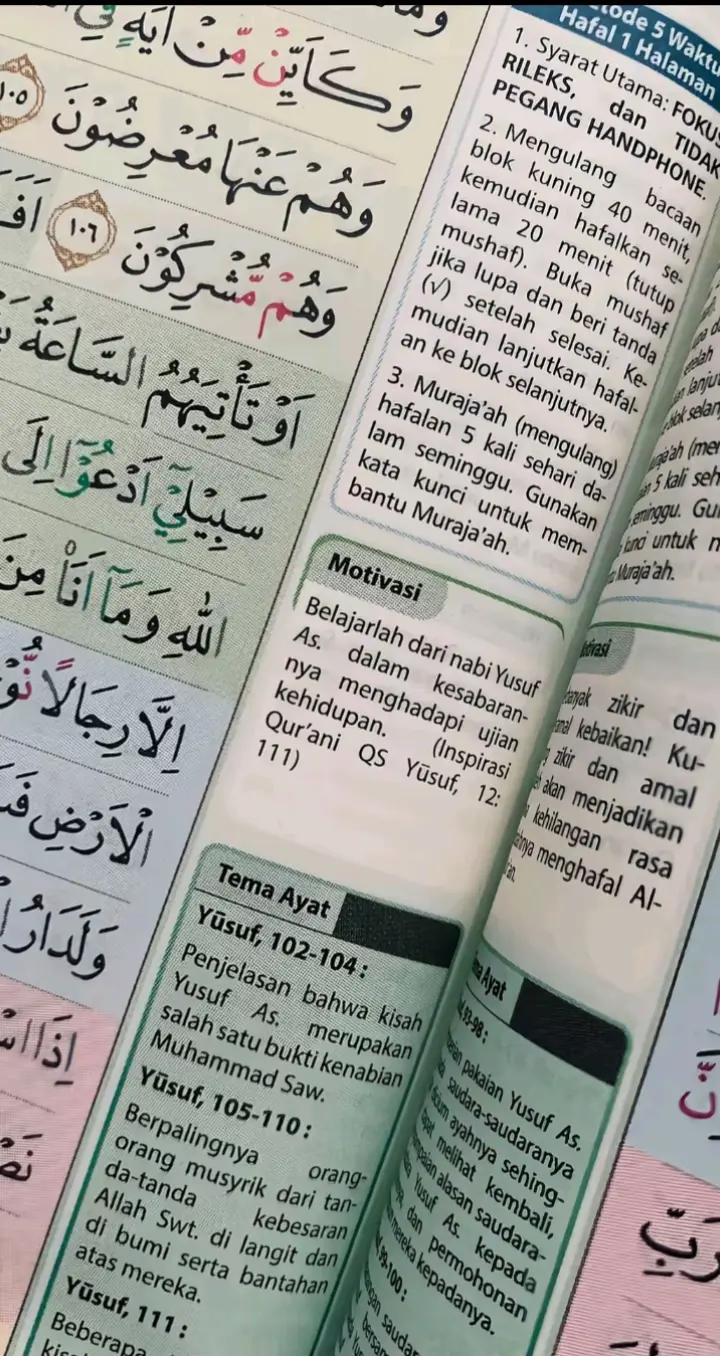 وَكَاَيِّنْ مِّنْ اٰيَةٍ فِى
وَهُمْ عَنْهَا مُعْرِضُوْنَ ١٠٥
وَهُمْ مُّشْرِكُوْنَ ١٠٦
اَوْ تَأْتِيَهُمُ السَّاعَةُ
سَبِيْلِيْٓ اَدْعُوْٓا اِلَى
اللّٰهِ وَمَآ اَنَا۠ مِنَ
اِلَّا رِجَالًا
الْاَرْضِ
وَلَدَارُ
5 Waktu
Hafal 1 Halaman
1. Syarat Utama: FOKUS
RILEKS, dan TIDAK
PEGANG HANDPHONE.
2. Mengulang bacaan
blok kuning 40 menit,
kemudian hafalkan se-
lama 20 menit (tutup
mushaf). Buka mushaf
jika lupa dan beri tanda
(√) setelah selesai. Ke-
mudian lanjutkan hafal-
an ke blok selanjutnya.
3. Muraja'ah (mengulang)
hafalan 5 kali sehari da-
lam seminggu. Gunakan
kata kunci untuk mem-
bantu Muraja'ah.
Motivasi
Belajarlah dari nabi Yusuf
As. dalam kesabaran-
nya menghadapi ujian
kehidupan. (Inspirasi
Qur'ani QS Yūsuf, 12:
111)
Tema Ayat
Yūsuf, 102-104 :
Penjelasan bahwa kisah
Yusuf As. merupakan
salah satu bukti kenabian
Muhammad Saw.
Yūsuf, 105-110 :
Berpalingnya orang-
orang musyrik dari tan-
da-tanda kebesaran
Allah Swt. di langit dan
di bumi serta bantahan
atas mereka.
Yūsuf, 111 :
Beberapa
5 kali
untuk
Muraja'ah.
zikir dan
kebaikan! Ku-
zikir dan amal
akan menjadikan
kehilangan rasa
menghafal Al-
Ayat
93-98 :
pakaian Yusuf As.
saudara-saudaranya
ayahnya sehing-
melihat kembali,
alasan saudara-
Yusuf As. kepada
dan permohonan
mereka kepadanya.
99-100 :
رَبِّ